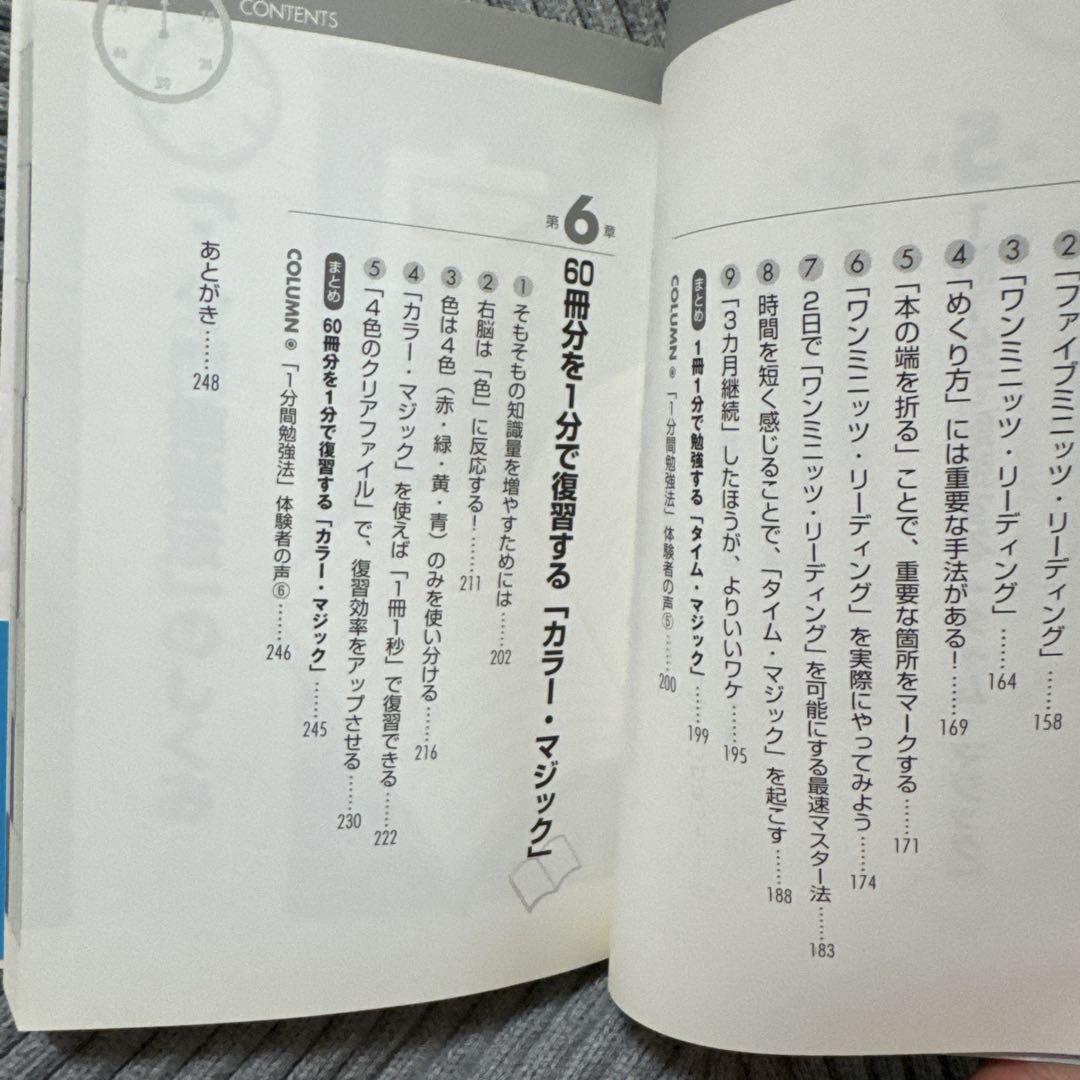 CONTENTS
2 「ファイブミニッツ・リーディング」……158
3 「ワンミニッツ・リーディング」……164
4 「めくり方」には重要な手法がある！……169
5 「本の端を折る」ことで、重要な箇所をマークする……171
6 「ワンミニッツ・リーディング」を実際にやってみよう……174
7 2日で「ワンミニッツ・リーディング」を可能にする最速マスター法……183
8 時間を短く感じることで、「タイム・マジック」を起こす……188
9 「3カ月継続」したほうが、よりいいワケ……195
まとめ 1冊1分で勉強する「タイム・マジック」……199
COLUMN 「1分間勉強法」体験者の声⑤……200
第6章 60冊分を1分で復習する「カラー・マジック」
1 そもそもの知識量を増やすためには……202
2 右脳は「色」に反応する！……211
3 色は4色（赤・緑・黄・青）のみを使い分ける……216
4 「カラー・マジック」を使えば「1冊1秒」で復習できる……222
5 「4色のクリアファイル」で、復習効率をアップさせる……230
まとめ 60冊分を1分で復習する「カラー・マジック」……245
COLUMN 「1分間勉強法」体験者の声⑥……246
あとがき……248